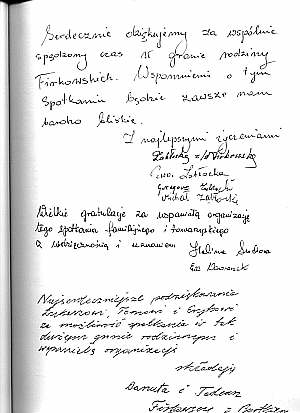 Serdecznie dziękujemy za wspólnie
spędzony czas w gronie rodziny
Firkowskich. Wspomnienie o tym
spotkaniu będzie zawsze nam
bardzo bliskie.
Z najlepszymi życzeniami
Ewa Zabłocka
Grzegorz Zabłocki
Michał Zabłocki
Wielkie gratulacje za wspaniałą organizację
tego spotkania familijnego i towarzyskiego
z wdzięcznością i uznaniem
Halina
Ewa
Najserdeczniejsze podziękowania
Tomowi i
za możliwość spotkania w tak
dużym gronie rodzinnym i
wspaniałą organizację
składają
Danuta i Tadeusz